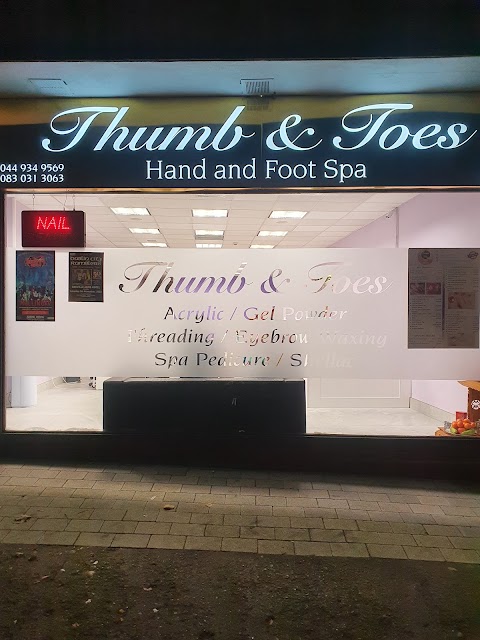 Thumb & Toes
Hand and Foot Spa
044 934 9569
083 031 3063
NAIL
Thumb & Toes
Acrylic / Gel Powder
Threading / Eyebrow Waxing
Spa Pedicure / Shellac